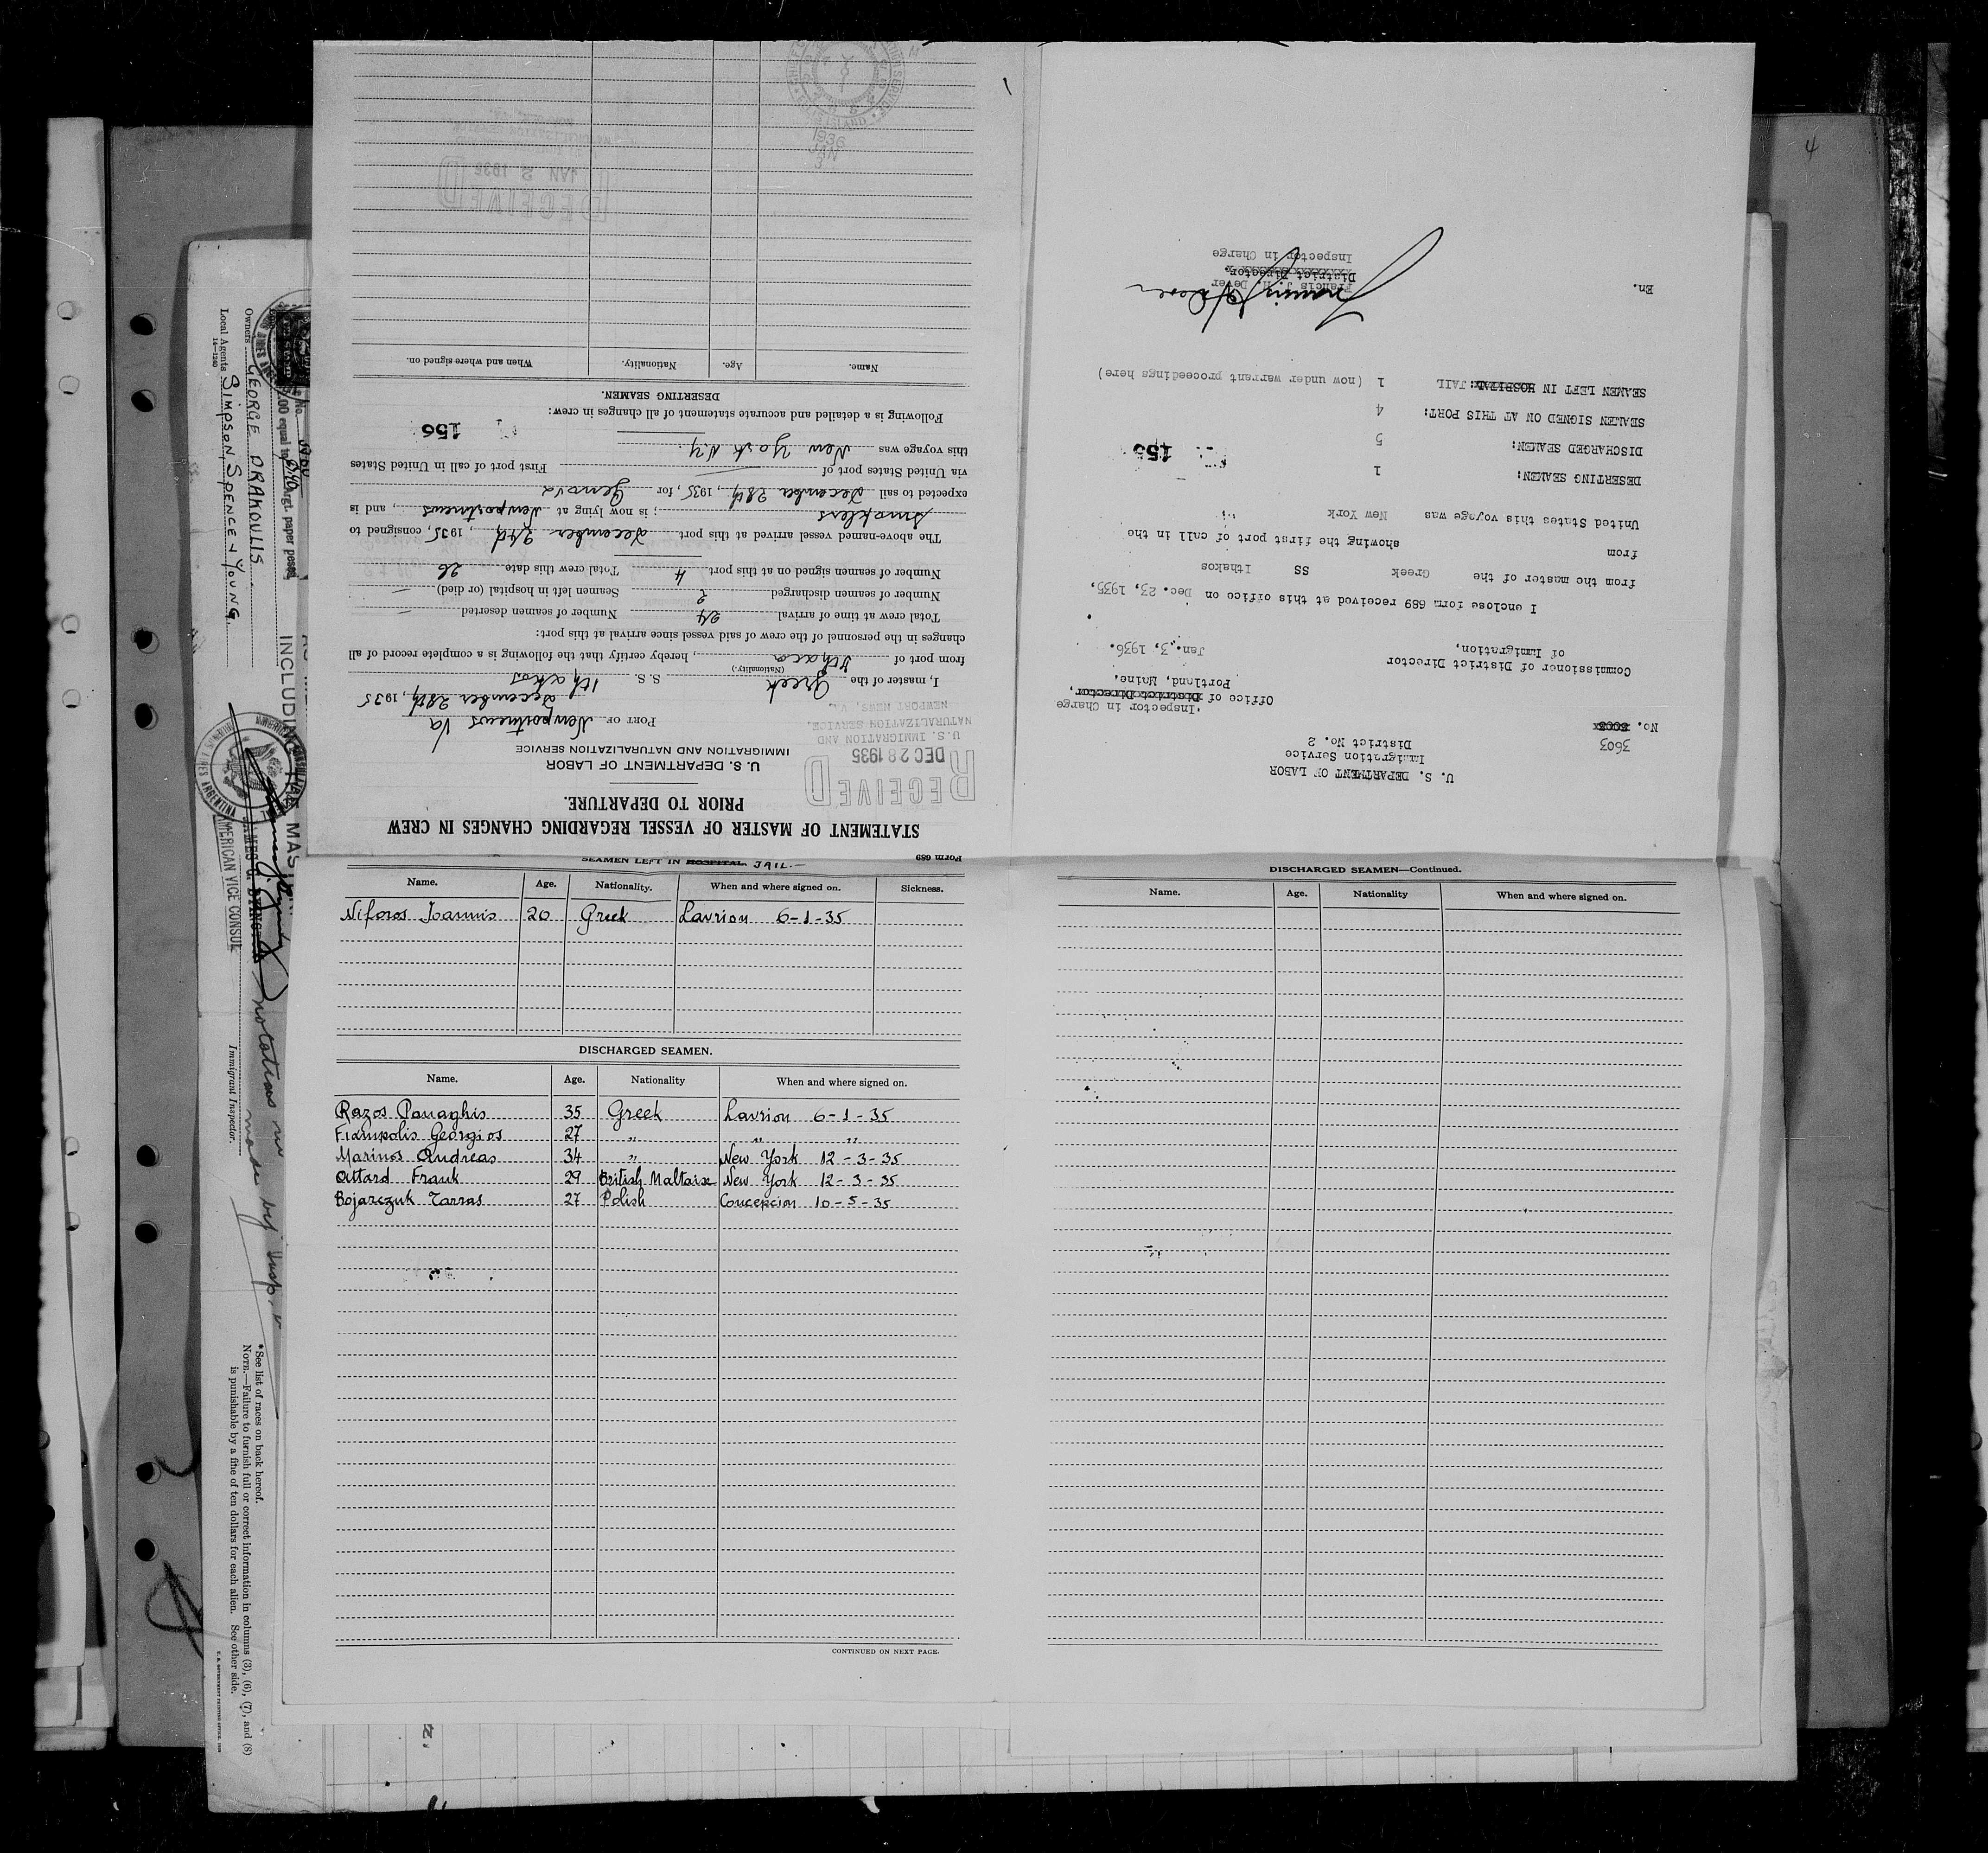 Form 689
STATEMENT OF MASTER OF VESSEL REGARDING CHANGES IN CREW
PRIOR TO DEPARTURE.
RECEIVED
DEC 28 1935
U.S. IMMIGRATION AND
NATURALIZATION SERVICE,
NEWPORT NEWS, VA.
U. S. DEPARTMENT OF LABOR
IMMIGRATION AND NATURALIZATION SERVICE
PORT OF Newportnews Va
December 28th, 1935
I, master of the Greek S. S. Ithakos
(Nationality.)
from port of Ithaca, hereby certify that the following is a complete record of all
changes in the personnel of the crew of said vessel since arrival at this port:
Total crew at time of arrival 24 Number of seamen deserted —
Number of seamen discharged 2 Seamen left in hospital (or died) —
Number of seamen signed on at this port 4 Total crew this date 26
The above-named vessel arrived at this port December 24d, 1935, consigned to
Smoklers; is now lying at Newportnews, and is
expected to sail December 28th, 1935, for Genova
via United States port of — First port of call in United States
this voyage was New York N.Y.
156
Following is a detailed and accurate statement of all changes in crew:
DESERTING SEAMEN.
Name. Age. Nationality. When and where signed on.
RECEIVED
JAN 2 1936
1936
JAN
3
U. S. DEPARTMENT OF LABOR
Immigration Service
District No. 2
3603
No.
Inspector in Charge
Office of District Director,
Portland, Maine.
Jan. 3, 1936.
Commissioner of District Director
of Immigration,
I enclose form 689 received at this office on Dec. 23, 1935,
from the master of the Greek SS Ithakos
from showing the first port of call in the
United States this voyage was New York
DESERTING SEAMEN: 1
155
DISCHARGED SEAMEN: 5
SEAMEN SIGNED ON AT THIS PORT: 4
SEAMEN LEFT IN HOSPITAL: JAIL 1 (now under warrant proceedings here)
En.
Francis J. H. Dever
District Director
Inspector in Charge
4
SEAMEN LEFT IN HOSPITAL. JAIL.—
Name. Age. Nationality. When and where signed on. Sickness.
Niforos Ioannis 20 Greek Lavrion 6-1-35
DISCHARGED SEAMEN.
Name. Age. Nationality When and where signed on.
Razos Panaghis 35 Greek Lavrion 6-1-35
Fiampolis Georgios 27 „ „ „
Marinos Andreas 34 „ New York 12-3-35
Attard Frank 29 British Maltaise New York 12-3-35
Bojarczuk Tarras 27 Polish Concepcion 10-5-35
CONTINUED ON NEXT PAGE.
DISCHARGED SEAMEN—Continued.
Name. Age. Nationality When and where signed on.
Owners GEORGE DRAKOULIS.
Local Agents SIMPSON, SPENCE & YOUNG.
14—1240
INCLUDING THE MAS
AMERICAN VICE CONSUL
Immigrant Inspector.
notations in
made by Insp.
*See list of races on back hereof.
NOTE.—Failure to furnish full or correct information in columns (3), (6), (7), and (8)
is punishable by a fine of ten dollars for each alien. See other side.